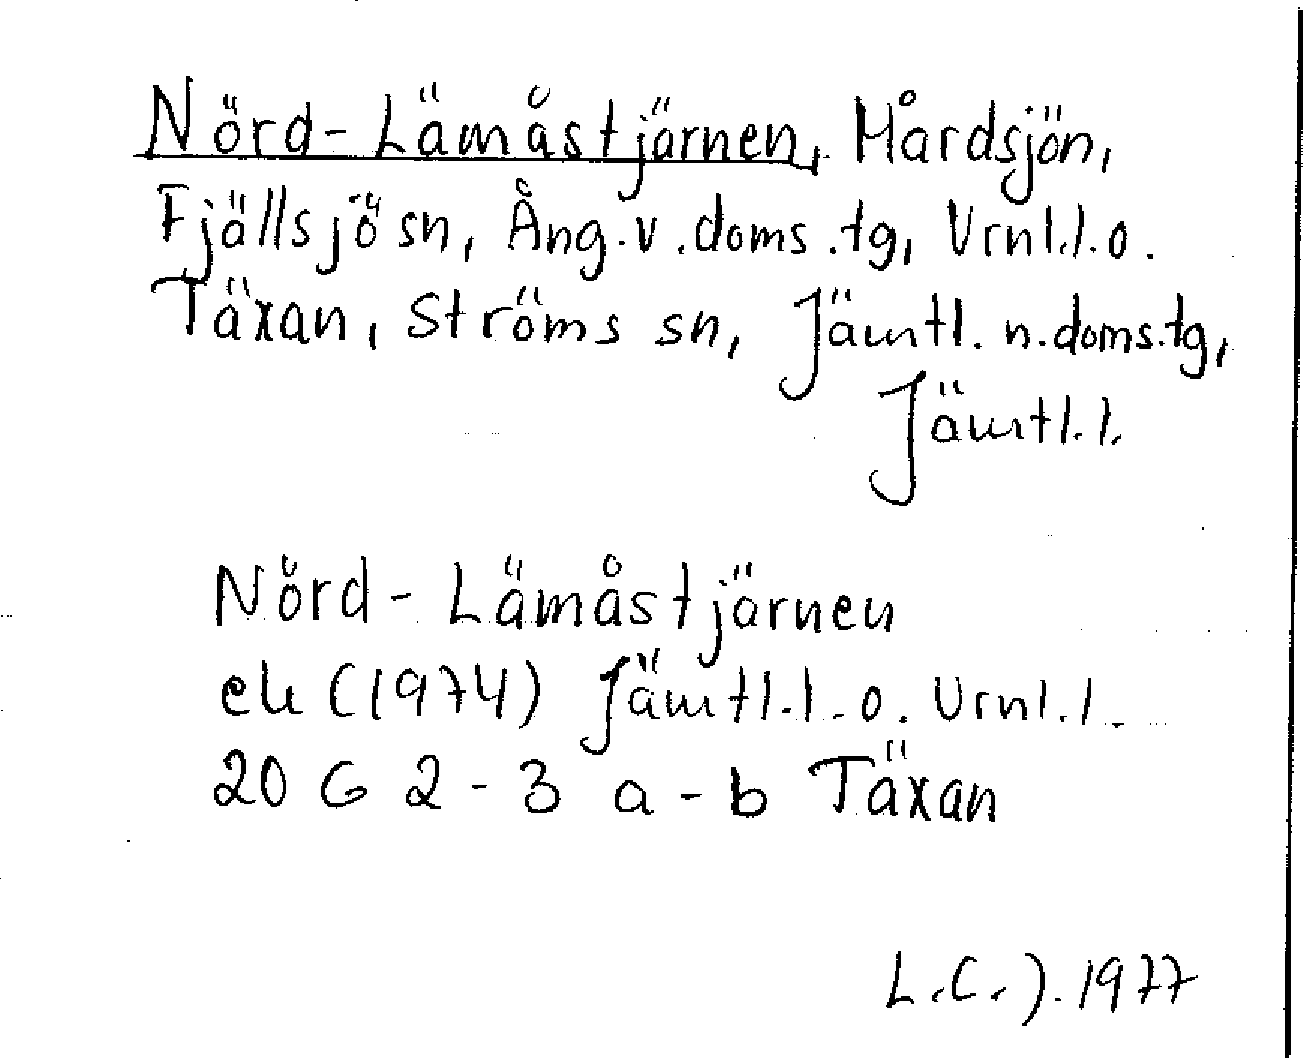 Nörd-Lämåstjärnen, Mårdsjön,
Fjällsjö sn, Ång.v.doms.tg, Vrnl.l.o.
Täxan, Ströms sn, Jämtl.n.doms.tg,
Jämtl.l.
Nörd-Lämåstjärnen
ek (1974) Jämtl.l.o. Vrnl.l.
20 G 2-3 a-b Täxan
L.C.J. 1977